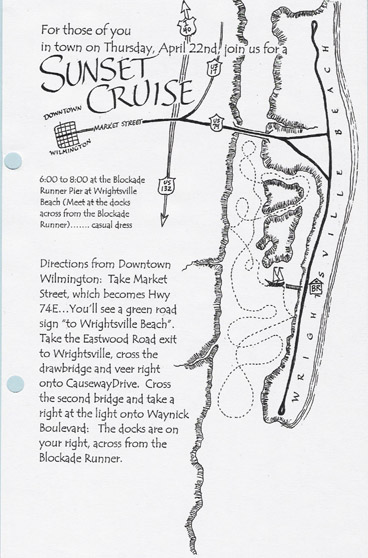 For those of you
in town on Thursday, April 22nd, join us for a
SUNSET
CRUISE
40
US
17
DOWNTOWN
WILMINGTON
MARKET STREET
US
74
US
132
6:00 to 8:00 at the Blockade
Runner Pier at Wrightsville
Beach (Meet at the docks
across from the Blockade
Runner)....... casual dress
Directions from Downtown
Wilmington: Take Market
Street, which becomes Hwy
74E...You'll see a green road
sign "to Wrightsville Beach".
Take the Eastwood Road exit
to Wrightsville, cross the
drawbridge and veer right
onto CausewayDrive. Cross
the second bridge and take a
right at the light onto Waynick
Boulevard: The docks are on
your right, across from the
Blockade Runner.
BR
WRIGHTSVILLE BEACH